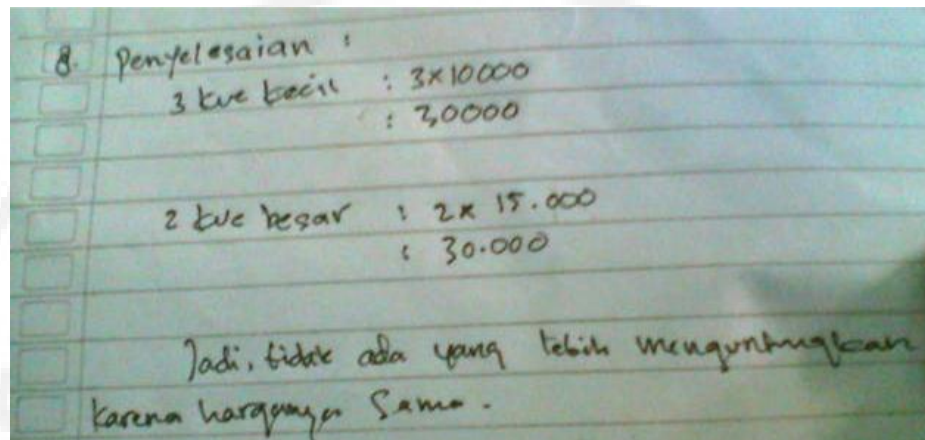 8. Penyelesaian :
3 kue kecil : 3×10000
: 30000
2 kue besar : 2× 15.000
: 30.000
Jadi, tidak ada yang lebih menguntungkan
karena harganya Sama.